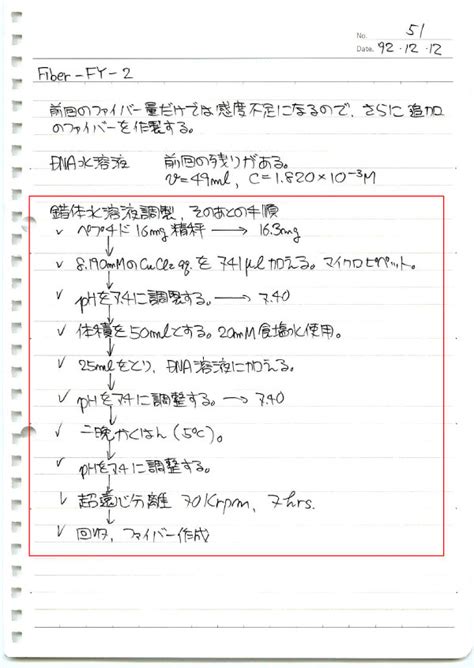 No. 51
Date. 92・12・12
Fiber-FY-2
前回のファイバー量だけでは感度不足になるので、さらに追加
のファイバーを作製する。
DNA水溶液 前回の残りがある。
v=49ml, C=1.820×10⁻³M
錯体水溶液調製, そのあとの手順
✓ ペプチド16mg精秤 → 16.3mg
✓ 8.190mMのCuCl₂ aq. を741μl加える。マイクロピペット。
✓ pHを7.4に調製する。→ 7.40
✓ 体積を50mlとする。20mM食塩水使用。
✓ 25mlをとり, DNA溶液に加える。
✓ pHを7.4に調整する。→ 7.40
✓ 一晩かくはん (5℃)。
✓ pHを7.4に調整する。
✓ 超遠心分離 70Krpm, 7hrs.
✓ 回収, ファイバー作成